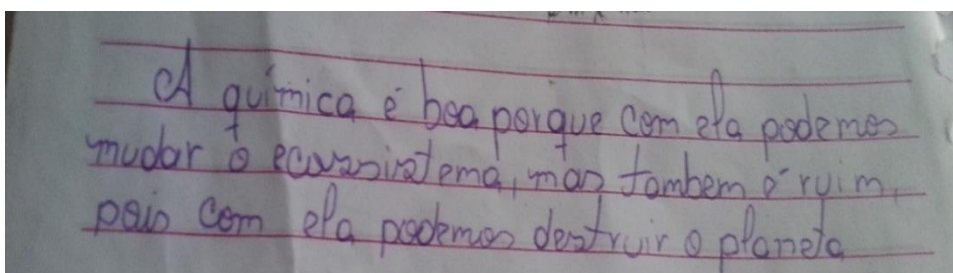 A química é boa porque com ela podemos
mudar o ecossistema, mas tambem é ruim,
pois com ela podemos destruir o planeta